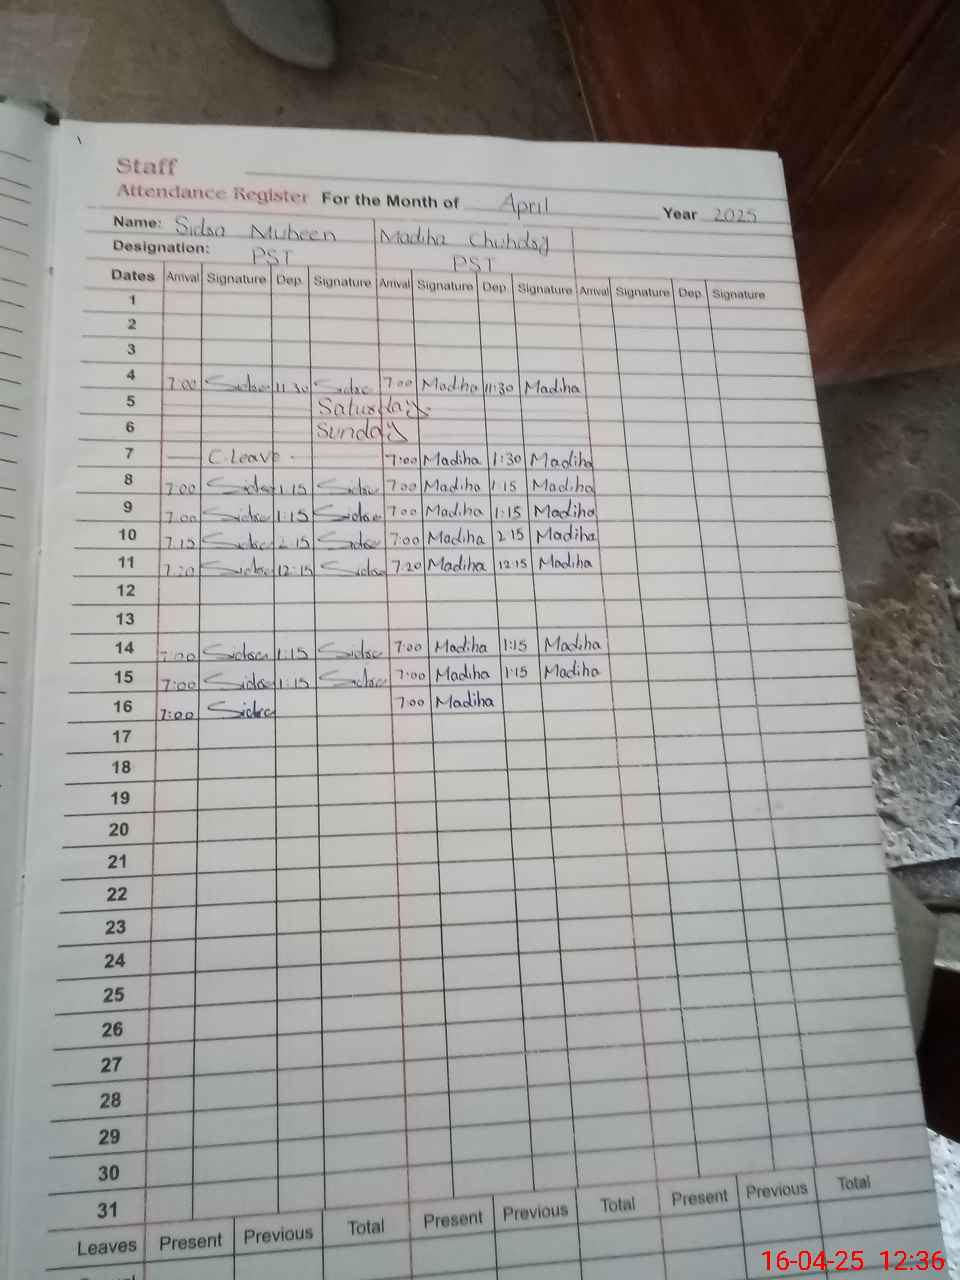 Staff
Attendance Register For the Month of April Year 2025
Name: Sidsa Mubeen Madiha
Designation: PST PST
Dates Arrival Signature Dep. Signature Arrival Signature Dep. Signature Arrival Signature Dep. Signature
1
2
3
4 7:00 Sidsa 11:30 Sidsa 7:00 Madiha 11:30 Madiha
5 Saturday
6 Sunday
7 C.Leave 7:00 Madiha 1:30 Madiha
8 7:00 Sidsa 1:15 Sidsa 7:00 Madiha 1:15 Madiha
9 7:00 Sidsa 1:15 Sidsa 7:00 Madiha 1:15 Madiha
10 7:15 Sidsa 2:15 Sidsa 7:00 Madiha 2:15 Madiha
11 7:20 Sidsa 12:15 Sidsa 7:20 Madiha 12:15 Madiha
12
13
14 7:00 Sidsa 1:15 Sidsa 7:00 Madiha 1:15 Madiha
15 7:00 Sidsa 1:15 Sidsa 7:00 Madiha 1:15 Madiha
16 7:00 Sidsa 7:00 Madiha
17
18
19
20
21
22
23
24
25
26
27
28
29
30
31
Leaves Present Previous Total Present Previous Total Present Previous Total
16-04-25 12:36